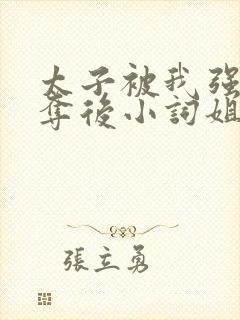 太子被我强
奪後小詞姐
張立勇